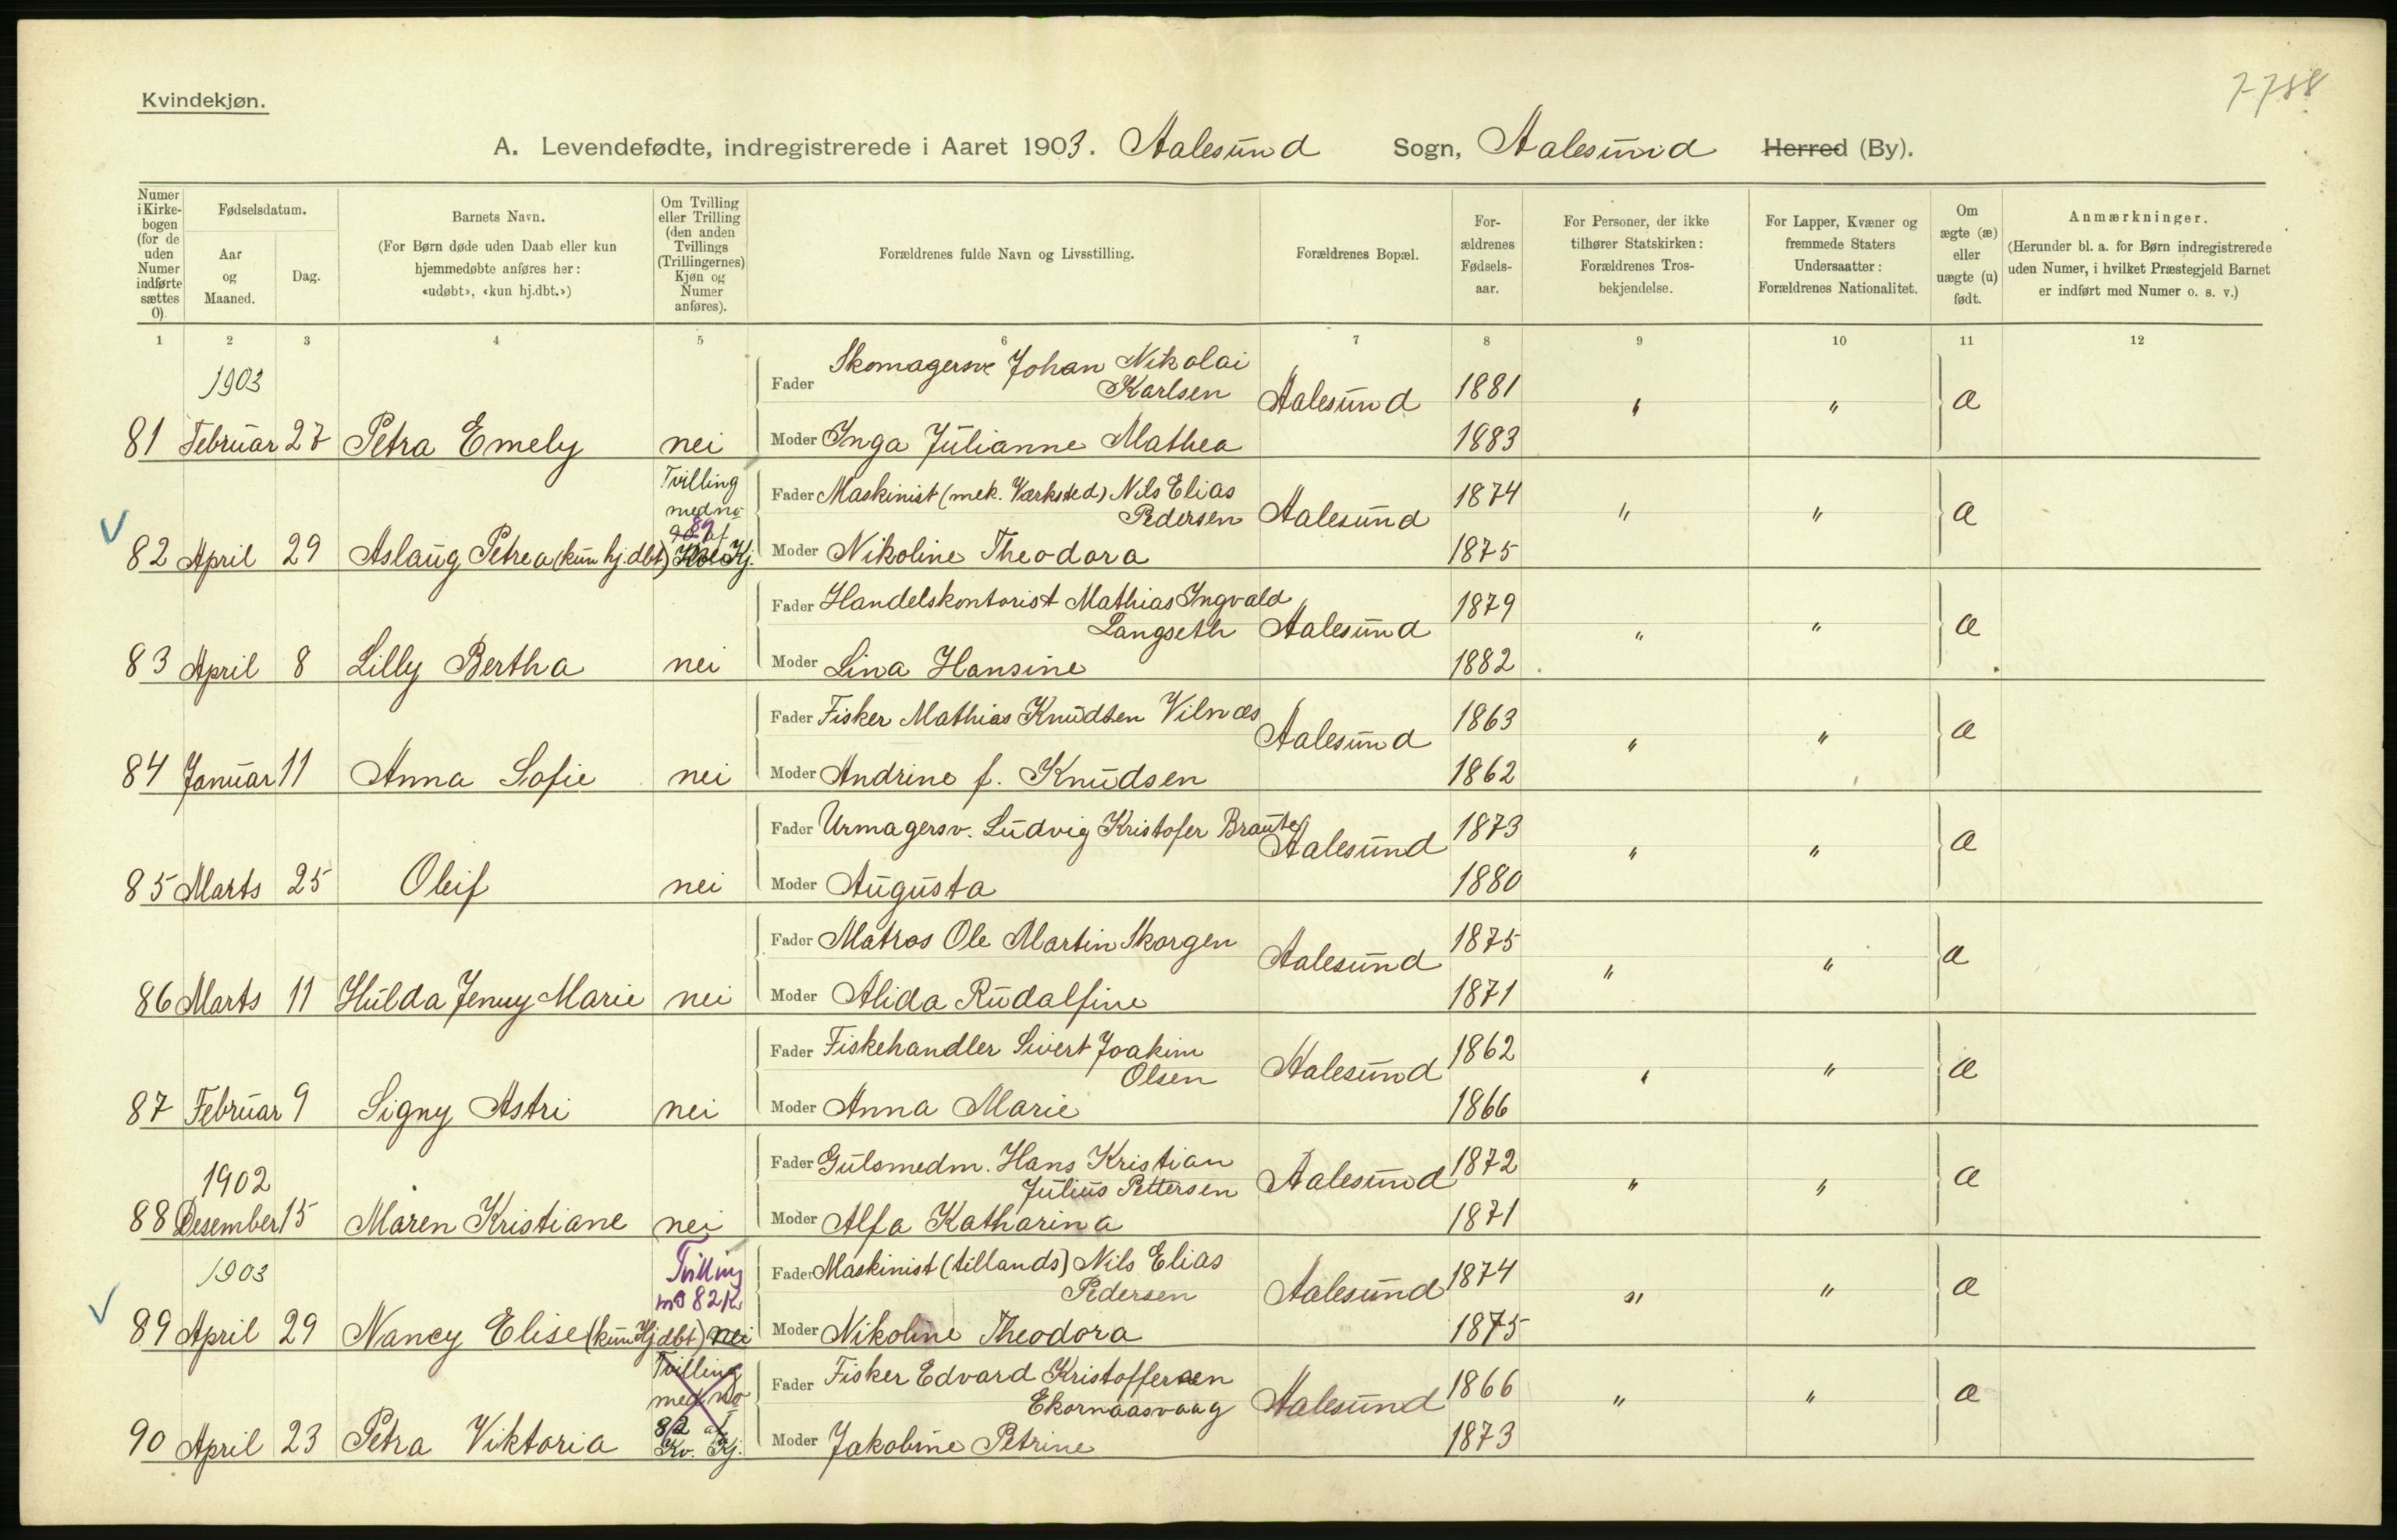 7-788
Kvindekjøn.
A. Levendefødte, indregistrerede i Aaret 1903. Aalesund Sogn, Aalesund Herred (By).
Numer i Kirkebogen (for de uden Numer indførte sættes 0).
Fødselsdatum.
Aar og Maaned.
Dag.
Barnets Navn.
(For Børn døde uden Daab eller kun hjemmedøbte anføres her: «udøbt», «kun hj.dbt.»)
Om Tvilling eller Trilling (den anden Tvillings (Trillingernes) Kjøn og Numer anføres).
Forældrenes fulde Navn og Livsstilling.
Forældrenes Bopæl.
For-ældrenes Fødsels-aar.
For Personer, der ikke tilhører Statskirken: Forældrenes Tros-bekjendelse.
For Lapper, Kvæner og fremmede Staters Undersaatter: Forældrenes Nationalitet.
Om ægte (æ) eller uægte (u) født.
Anmærkninger.
(Herunder bl. a. for Børn indregistrerede uden Numer, i hvilket Præstegjeld Barnet er indført med Numer o. s. v.)
1 2 3 4 5 6 7 8 9 10 11 12
1903
Fader Skomagersv Johan Nikolai
Karlsen Aalesund 1881 " " æ
81 Februar 27 Petra Emely nei Moder Inga Julianne Mathea 1883
Tvilling
med no
89 af
Fader Maskinist (mek. Værksted) Nils Elias
Pedersen Aalesund 1874 " " æ
82 April 29 Aslaug Petrea (kun hj.dbt) Kj. Moder Nikoline Theodora 1875
Fader Handelskontorist Mathias Ingvald
Langseth Aalesund 1879 " " æ
83 April 8 Lilly Bertha nei Moder Lina Hansine 1882
Fader Fisker Mathias Knudsen Vilnæs Aalesund 1863 " " æ
84 Januar 11 Anna Sofie nei Moder Andrine f. Knudsen 1862
Fader Urmagersv. Ludvig Kristofer Brautes Aalesund 1873 " " æ
85 Marts 25 Oleif nei Moder Augusta 1880
Fader Matros Ole Martin Skorgen Aalesund 1875 " " æ
86 Marts 11 Hulda Jenny Marie nei Moder Alida Rudalfine 1871
Fader Fiskehandler Sivert Joakim
Olsen Aalesund 1862 " " æ
87 Februar 9 Signy Astri nei Moder Anna Marie 1866
1902
Fader Gulsmedm. Hans Kristian
Julius Pettersen Aalesund 1872 " " æ
88 Desember 15 Maren Kristiane nei Moder Alfa Katharina 1871
1903
Tvilling
m 82 K.
Fader Maskinist (tillands) Nils Elias
Pedersen Aalesund 1874 " " æ
89 April 29 Nancy Elise (kun Hjdbt) nei Moder Nikoline Theodora 1875
Tvilling
med no
82 af
Kv. Kj.
Fader Fisker Edvard Kristoffersen
Ekornaasvaag Aalesund 1866 " " æ
90 April 23 Petra Viktoria Moder Jakobine Petrine 1873